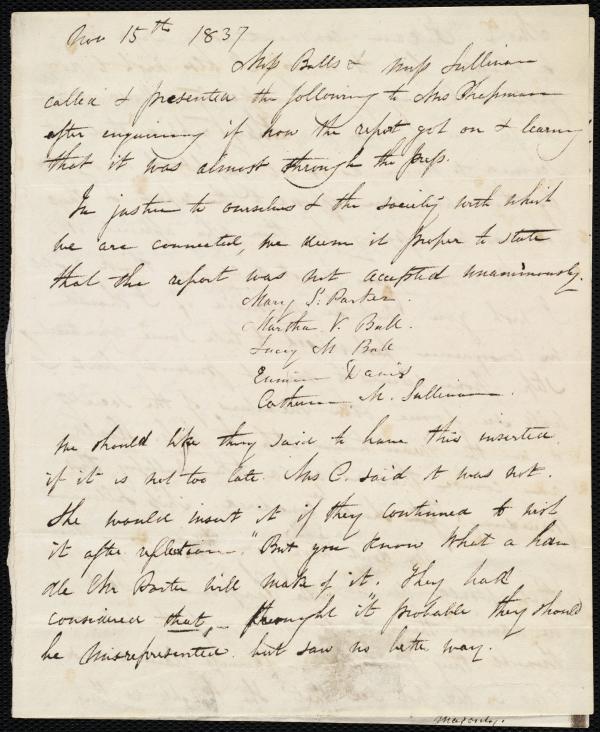 Nov 15th 1837
Miss Balls & Miss Sullivan
called & presented the following to Mrs Chapman
after enquiring if how the report got on & learning
that it was almost through the press.
In justice to ourselves & the society with which
we are connected, we deem it proper to state
that the report was not accepted unanimously.
Mary S. Parker.
Martha V. Ball.
Lucy M Ball
Eunice Davis
Catherine M. Sullivan.
We should like they said to have this inserted
if it is not too late. Mrs C. said it was not.
She would insert it if they continued to wish
it after reflection. "But you know what a han
dle Mr will make of it. They had
considered that, thought it probable they should
be misrepresented but saw no better way.